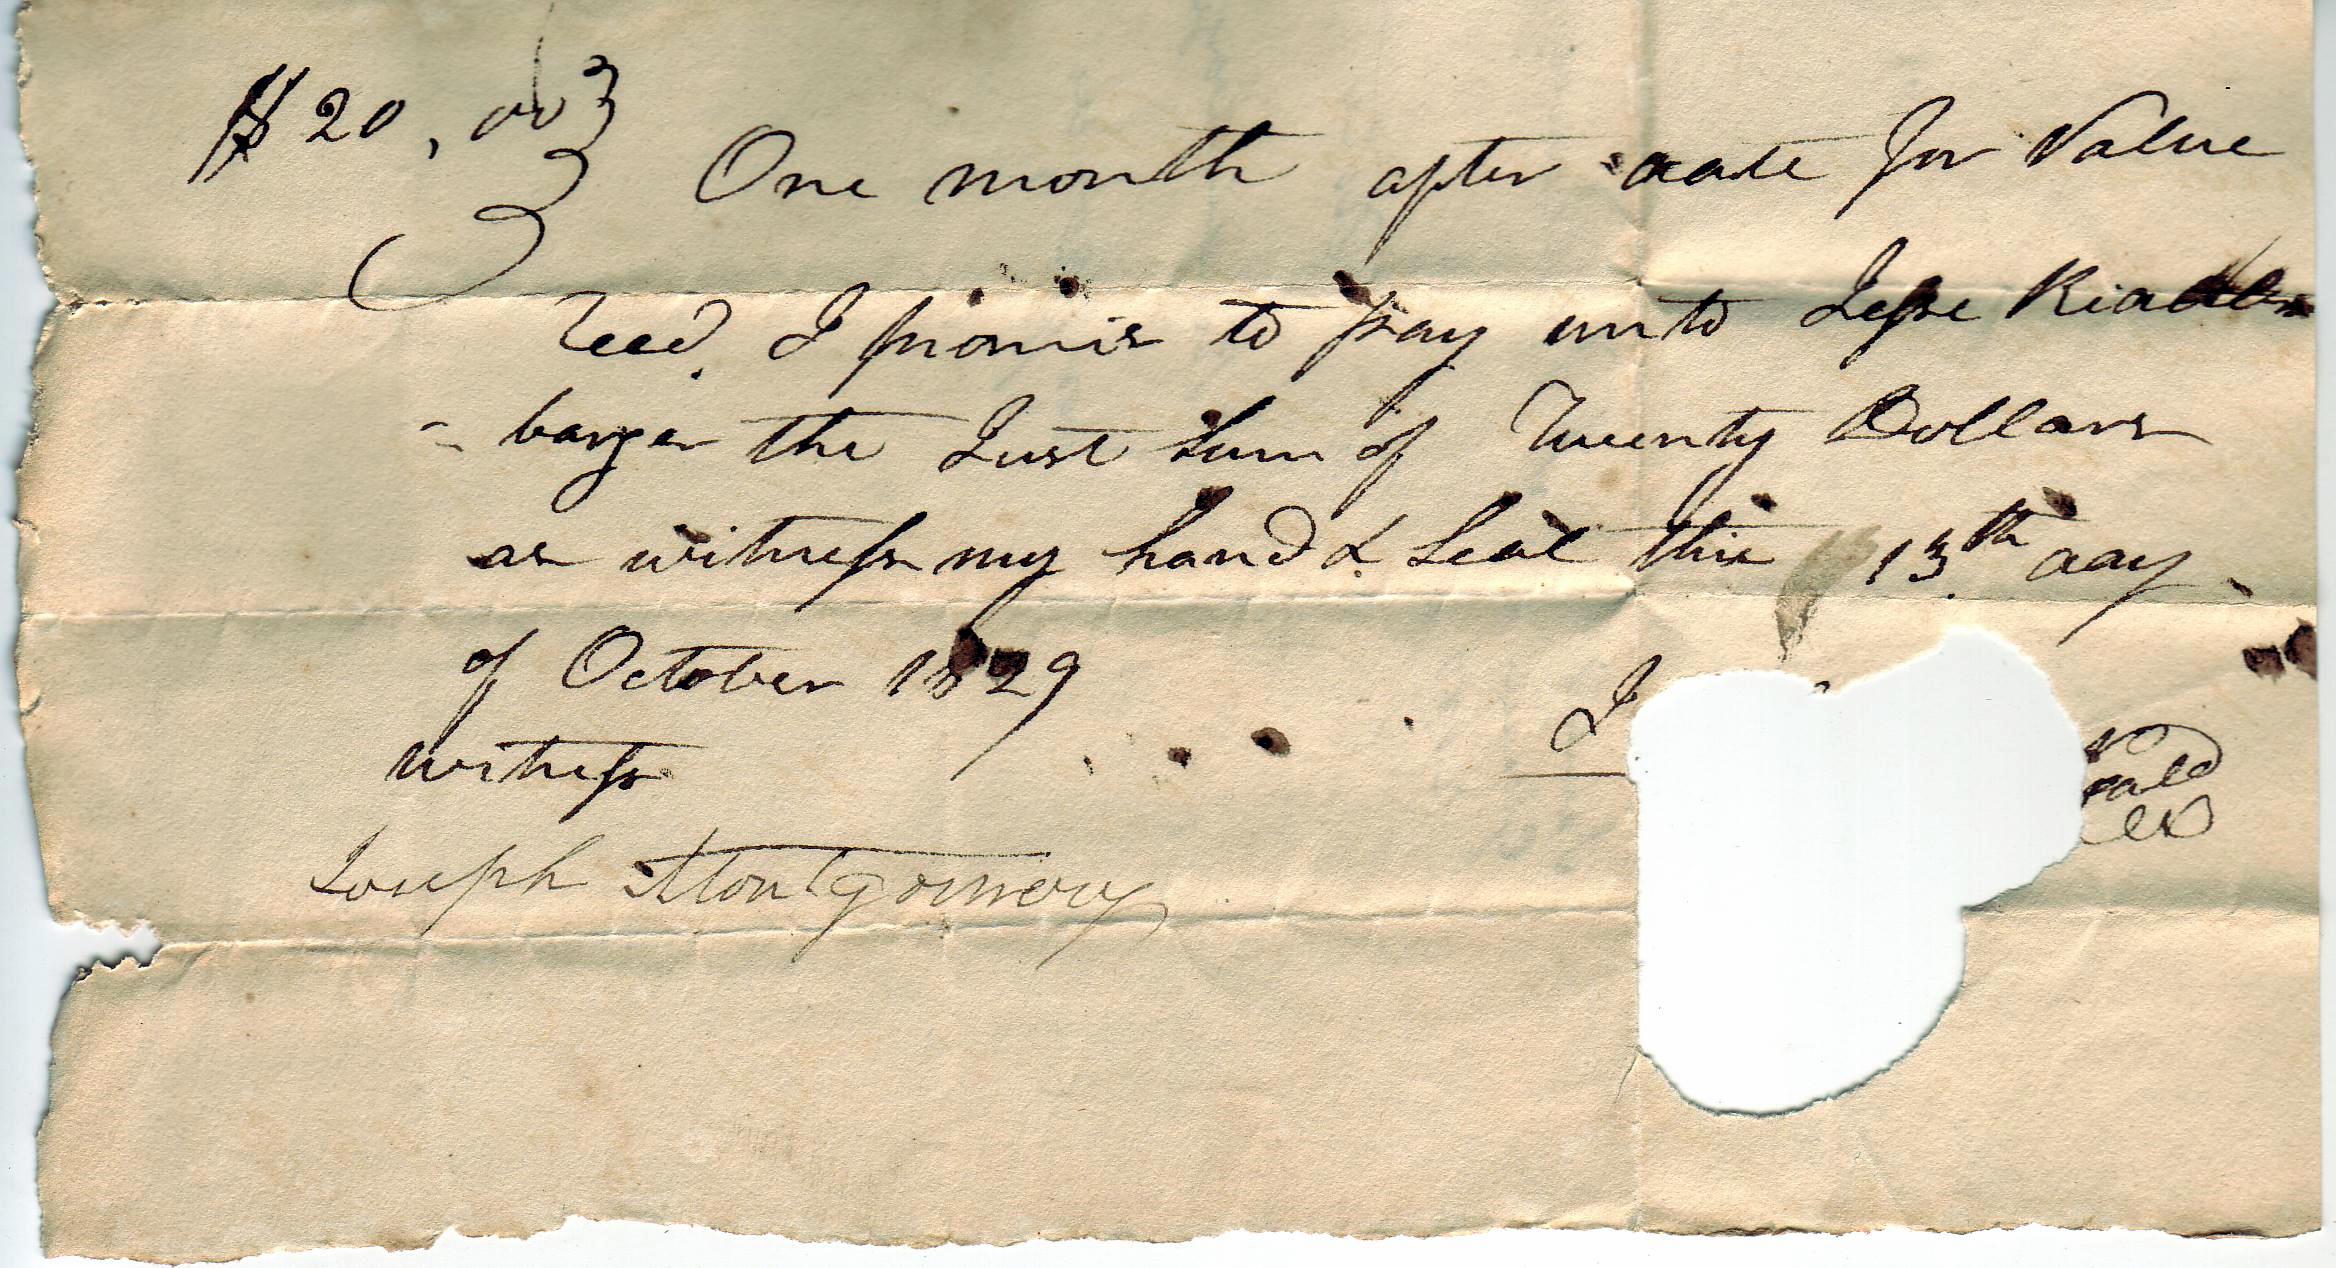 $20,00
One month after date for Value
Recd. I promis to pay unto Jesse Riddle
= barger the Just Sum of Twenty Dollars
as witness my hand & Seal this 13th day
of October 1829
witness
J
Joseph Montgomery